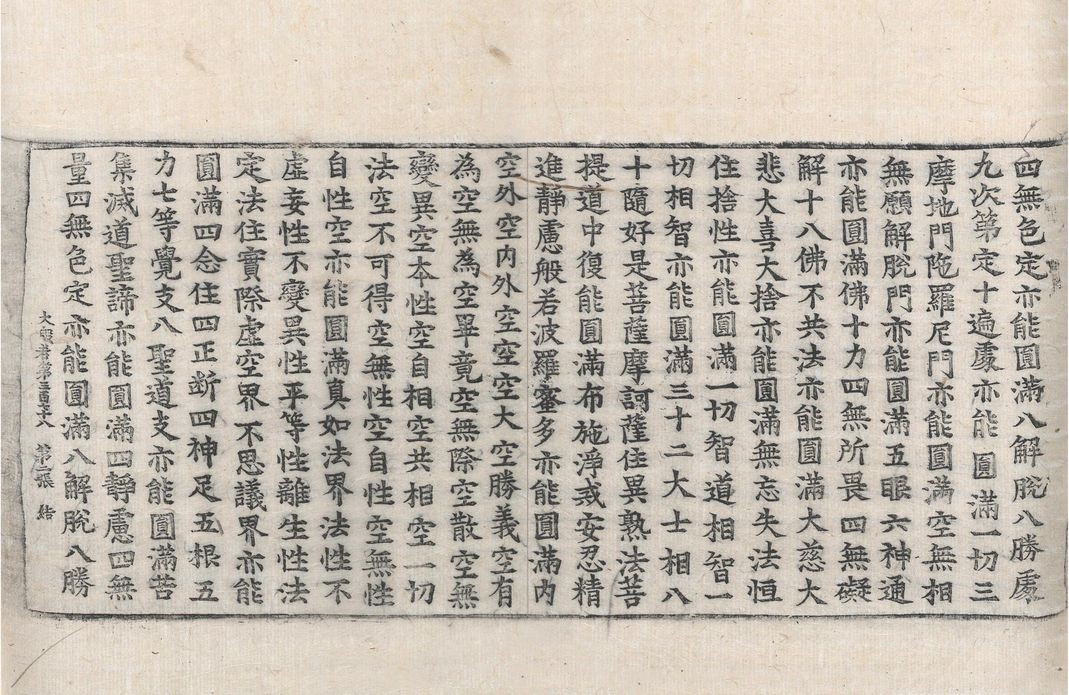 四無色定亦能圓滿八解脫八勝處
九次第定十遍處亦能圓滿一切三
摩地門陁羅尼門亦能圓滿空無相
無願解脫門亦能圓滿五眼六神通
亦能圓滿佛十力四無所畏四無礙
解十八佛不共法亦能圓滿大慈大
悲大喜大捨亦能圓滿無忘失法恒
住捨性亦能圓滿一切智道相智一
切相智亦能圓滿三十二大士相八
十隨好是菩薩摩訶薩住異熟法菩
提道中復能圓滿布施淨戒安忍精
進靜慮般若波羅蜜多亦能圓滿內
空外空內外空空空大空勝義空有
為空無為空畢竟空無際空散空無
變異空本性空自相空共相空一切
法空不可得空無性空自性空無性
自性空亦能圓滿真如法界法性不
虛妄性不變異性平等性離生性法
定法住實際虛空界不思議界亦能
圓滿四念住四正断四神足五根五
力七等覺支八聖道支亦能圓滿苦
集滅道聖諦亦能圓滿四靜慮四無
量四無色定亦能圓滿八解脫八勝
大般若第三百 第二張 结